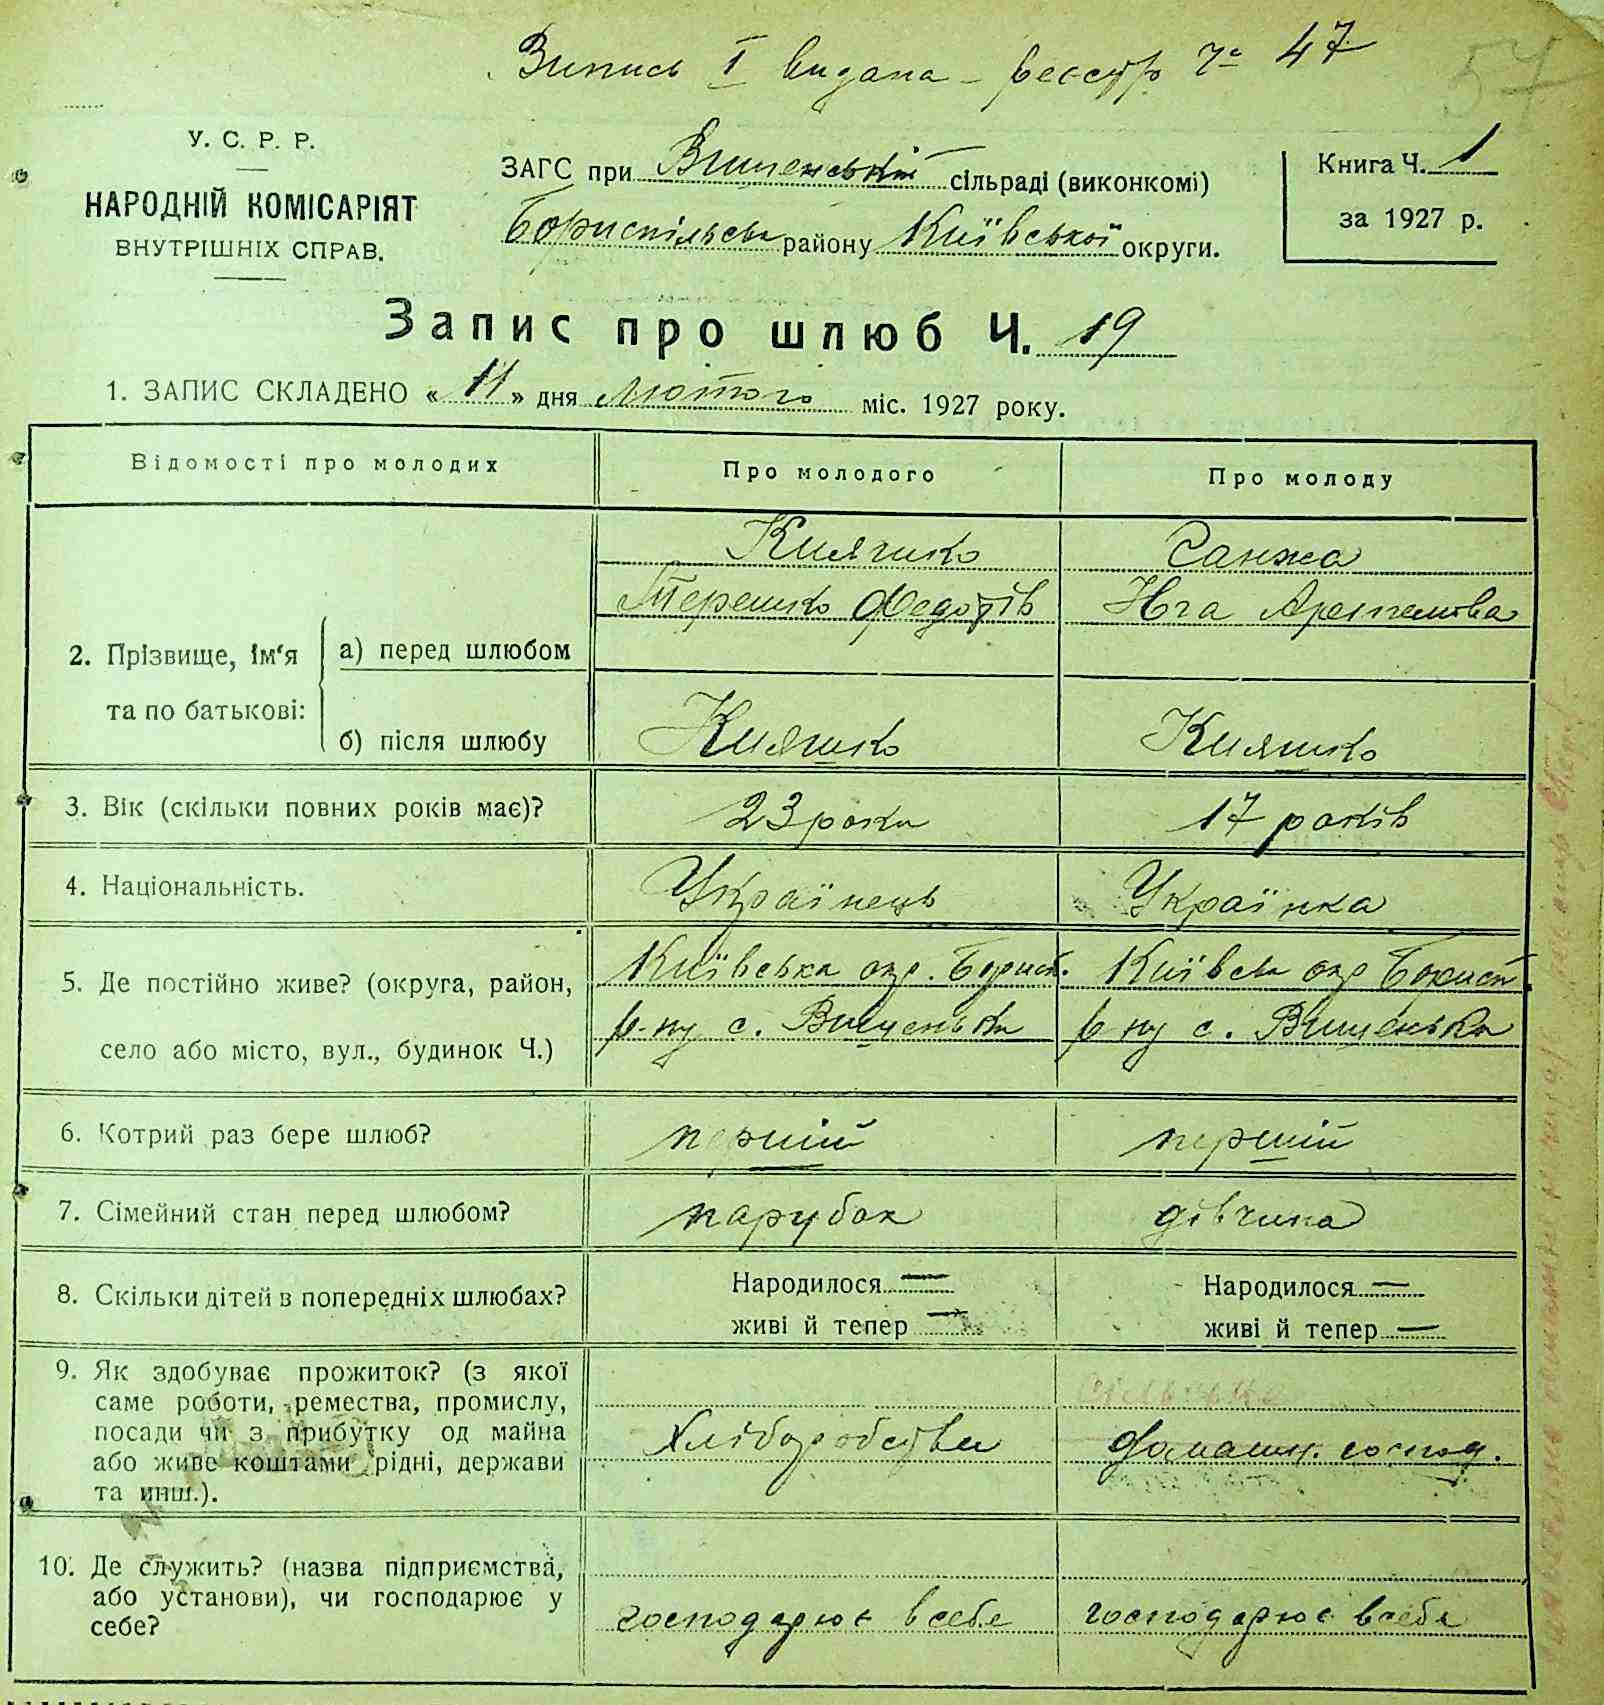 Випись І видана – реєстр № 47
57
У. С. Р. Р.
НАРОДНІЙ КОМІСАРІЯТ
ВНУТРІШНІХ СПРАВ.
ЗАГС при Вишенській сільраді (виконкомі)
Бориспільськ району Київської округи.
Книга Ч. 1
за 1927 р.
Запис про шлюб Ч. 19
1. ЗАПИС СКЛАДЕНО « 11 » дня лютого міс. 1927 року.
Відомості про молодих
Про молодого
Про молоду
2. Прізвище, ім'я та по батькові:
а) перед шлюбом
Кияшко
Терешко Федотів
Санжа
Юга
б) після шлюбу
Кияшко
Кияшко
3. Вік (скільки повних років має)?
23 роки
17 років
4. Національність.
Українець
Українка
5. Де постійно живе? (округа, район,
село або місто, вул., будинок Ч.)
Київська окр. Борисп.
р-ну с. Вишеньки
Київськ окр Борисп
р-ну с. Вишеньки
6. Котрий раз бере шлюб?
перший
перший
7. Сімейний стан перед шлюбом?
парубок
дівчина
8. Скільки дітей в попередніх шлюбах?
Народилося —
живі й тепер —
Народилося —
живі й тепер —
9. Як здобуває прожиток? (з якої
саме роботи, ремества, промислу,
посади чи з прибутку од майна
або живе коштами рідні, держави
та инш.).
Хліборобства
домашн. господ.
10. Де служить? (назва підприємства,
або установи), чи господарює у
себе?
господарює в себе
господарює в себе